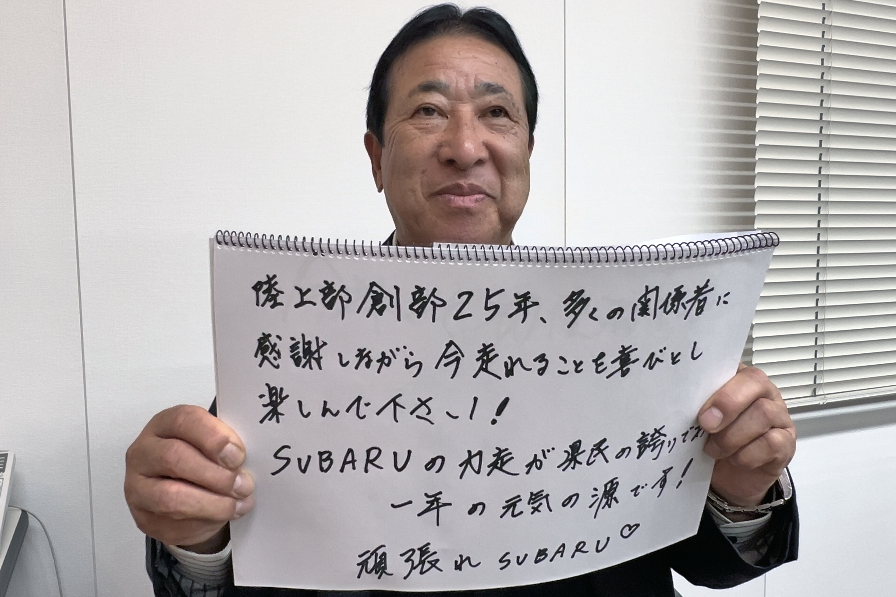 陸上部創部25年、多くの関係者に
感謝しながら今走れることを喜びとし
楽しんで下さい!
SUBARUの力走が県民の誇りであり
一年の元気の源です!
頑張れ SUBARU♡